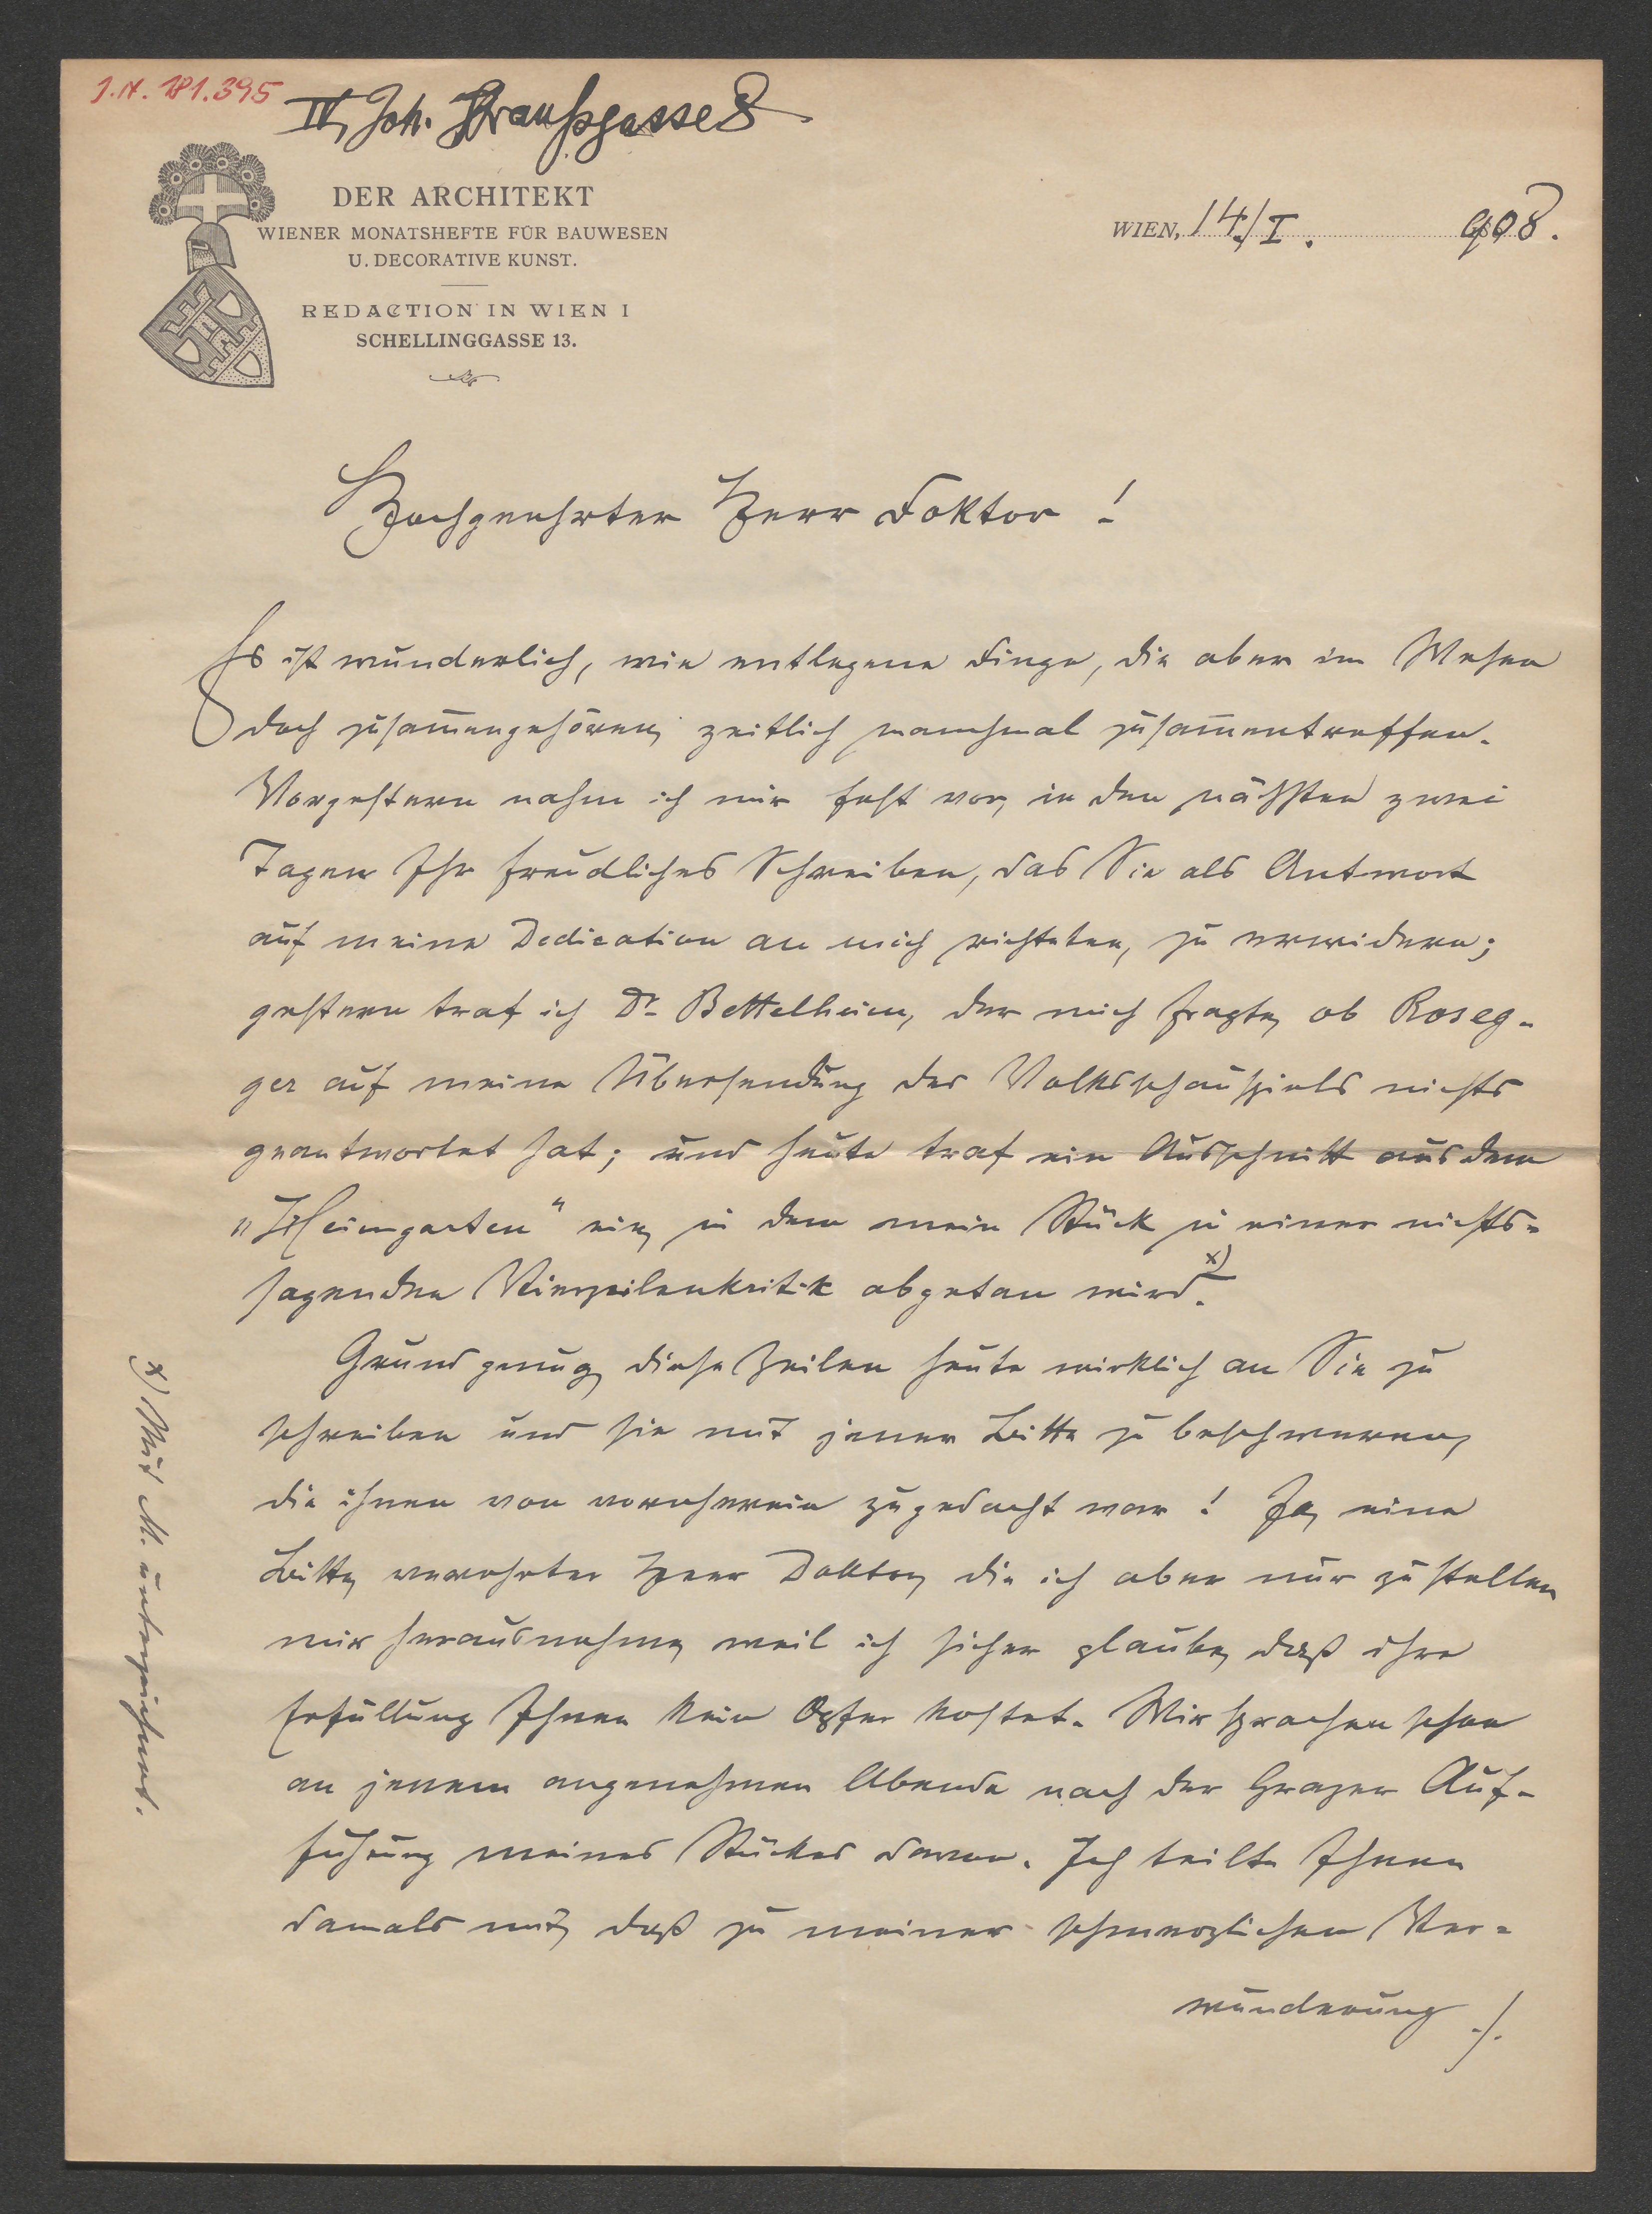 I.N. 181.395
IV, Joh. Straußgasse 8
DER ARCHITEKT
WIENER MONATSHEFTE FÜR BAUWESEN
U. DECORATIVE KUNST.
REDACTION IN WIEN I
SCHELLINGGASSE 13.
WIEN, 14./I. 908.
Hochgeehrter Herr Doktor!
Es ist wunderlich, wie entlegene Dinge, die aber im Wesen
doch zusam̅engehören, zeitlich manchmal zusam̅entreffen.
Vorgestern nahm ich mir fest vor, in den nächsten zwei
Tagen Ihr freundliches Schreiben, das Sie als Antwort
auf meine Dedication an mich richteten, zu erwidern;
gestern traf ich Dr. Bettelheim, der mich fragte, ob Roseg-
ger auf meine Übersendung des Volksschauspiels nichts
geantwortet hat; und heute traf ein Ausschnitt aus dem
„Heimgarten“ ein, in dem mein Stück in einer nichts-
sagenden Vierzeilenkritik abgetan wird. x)
Grund genug, diese Zeilen heute wirklich an Sie zu
schreiben und sie mit jener Bitte zu beschweren,
die ihnen von vornherein zugedacht war! Ja, eine
Bitte, verehrter Herr Doktor, die ich aber nur zu stellen
mir herausnehme, weil ich sicher glaube, daß ihre
Erfüllung Ihnen kein Opfer kostet. Wir sprachen schon
an jenem angenehmen Abende nach der Grazer Auf-
führung meines Stückes davon. Ich teilte Ihnen
damals mit, daß zu meiner schmerzlichen Ver-
wunderung ./.
x) Mit M. unterzeichnet.